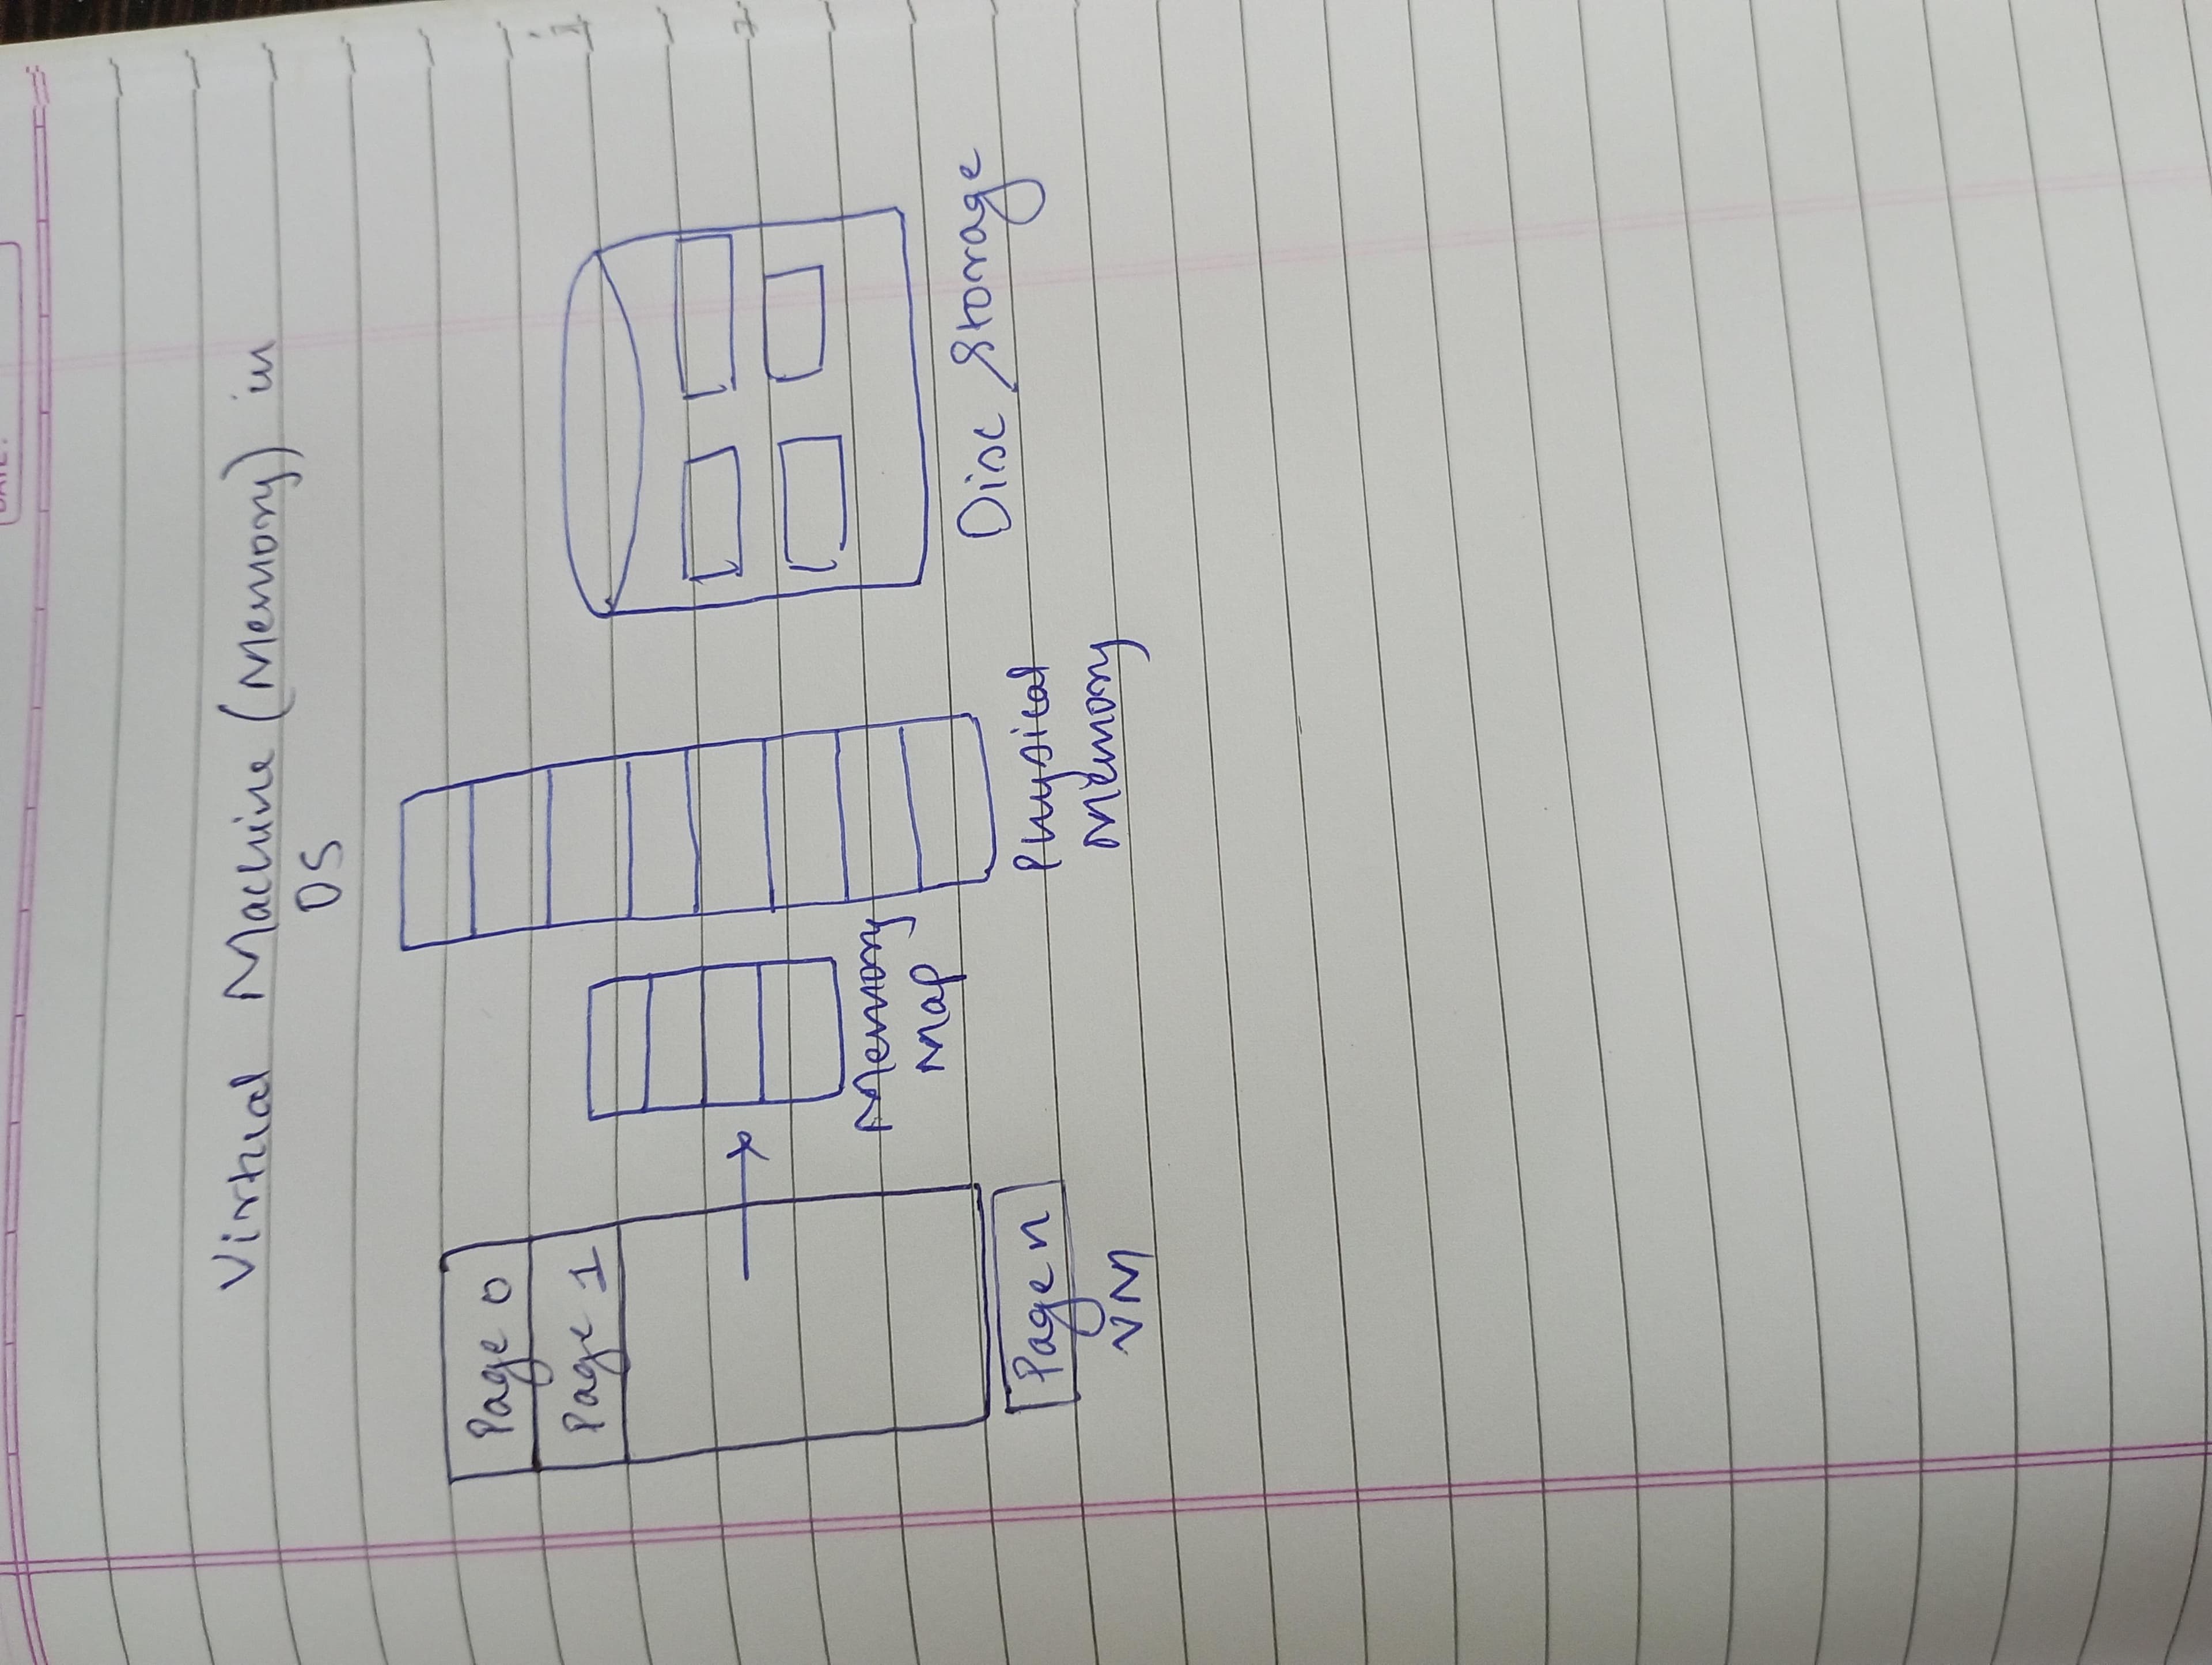 Virtual Machine (Memory) in
OS
Page 0
Page 1
Page n
VM
Memory
Map
Physical
Memory
Disc Storage